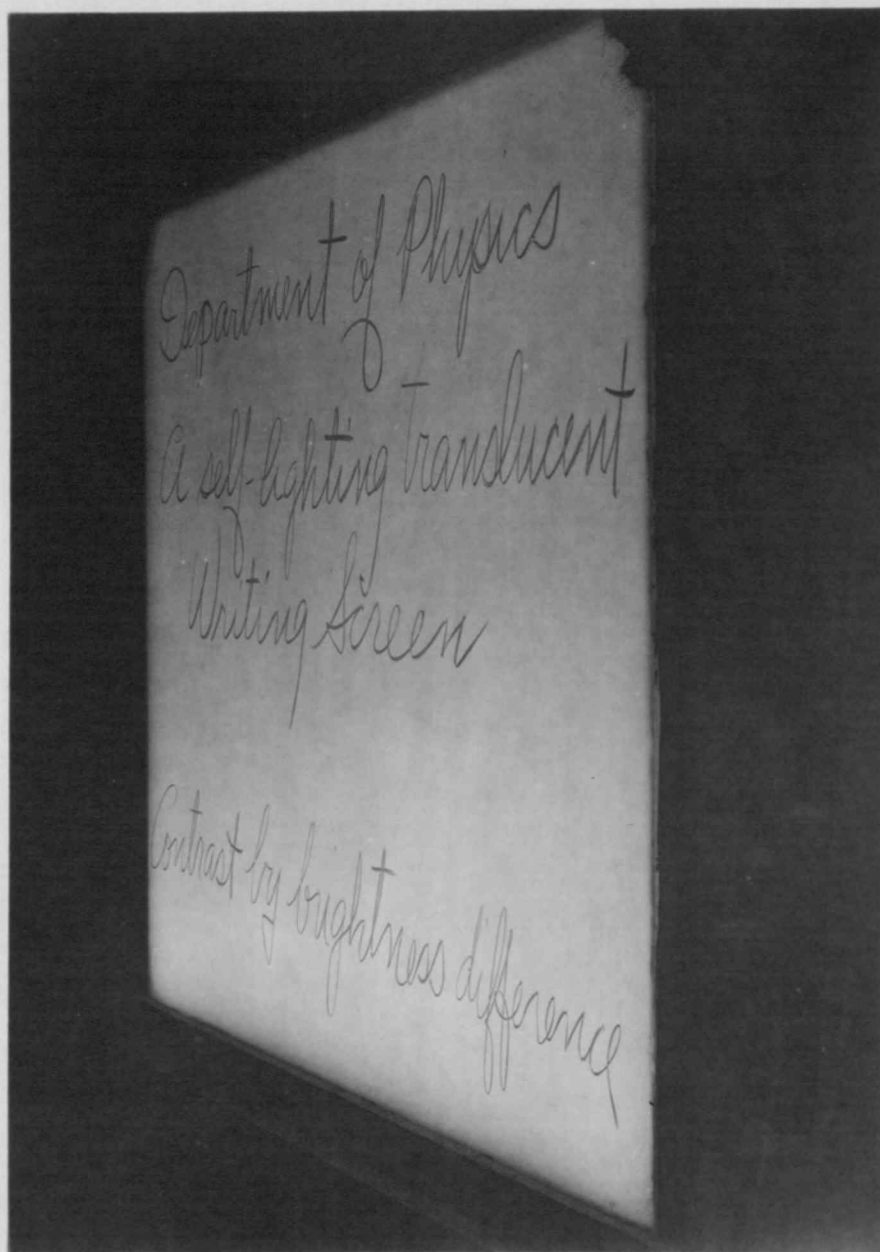 Department of Physics
A self-lighting translucent
Writing Screen
Contrast by brightness difference